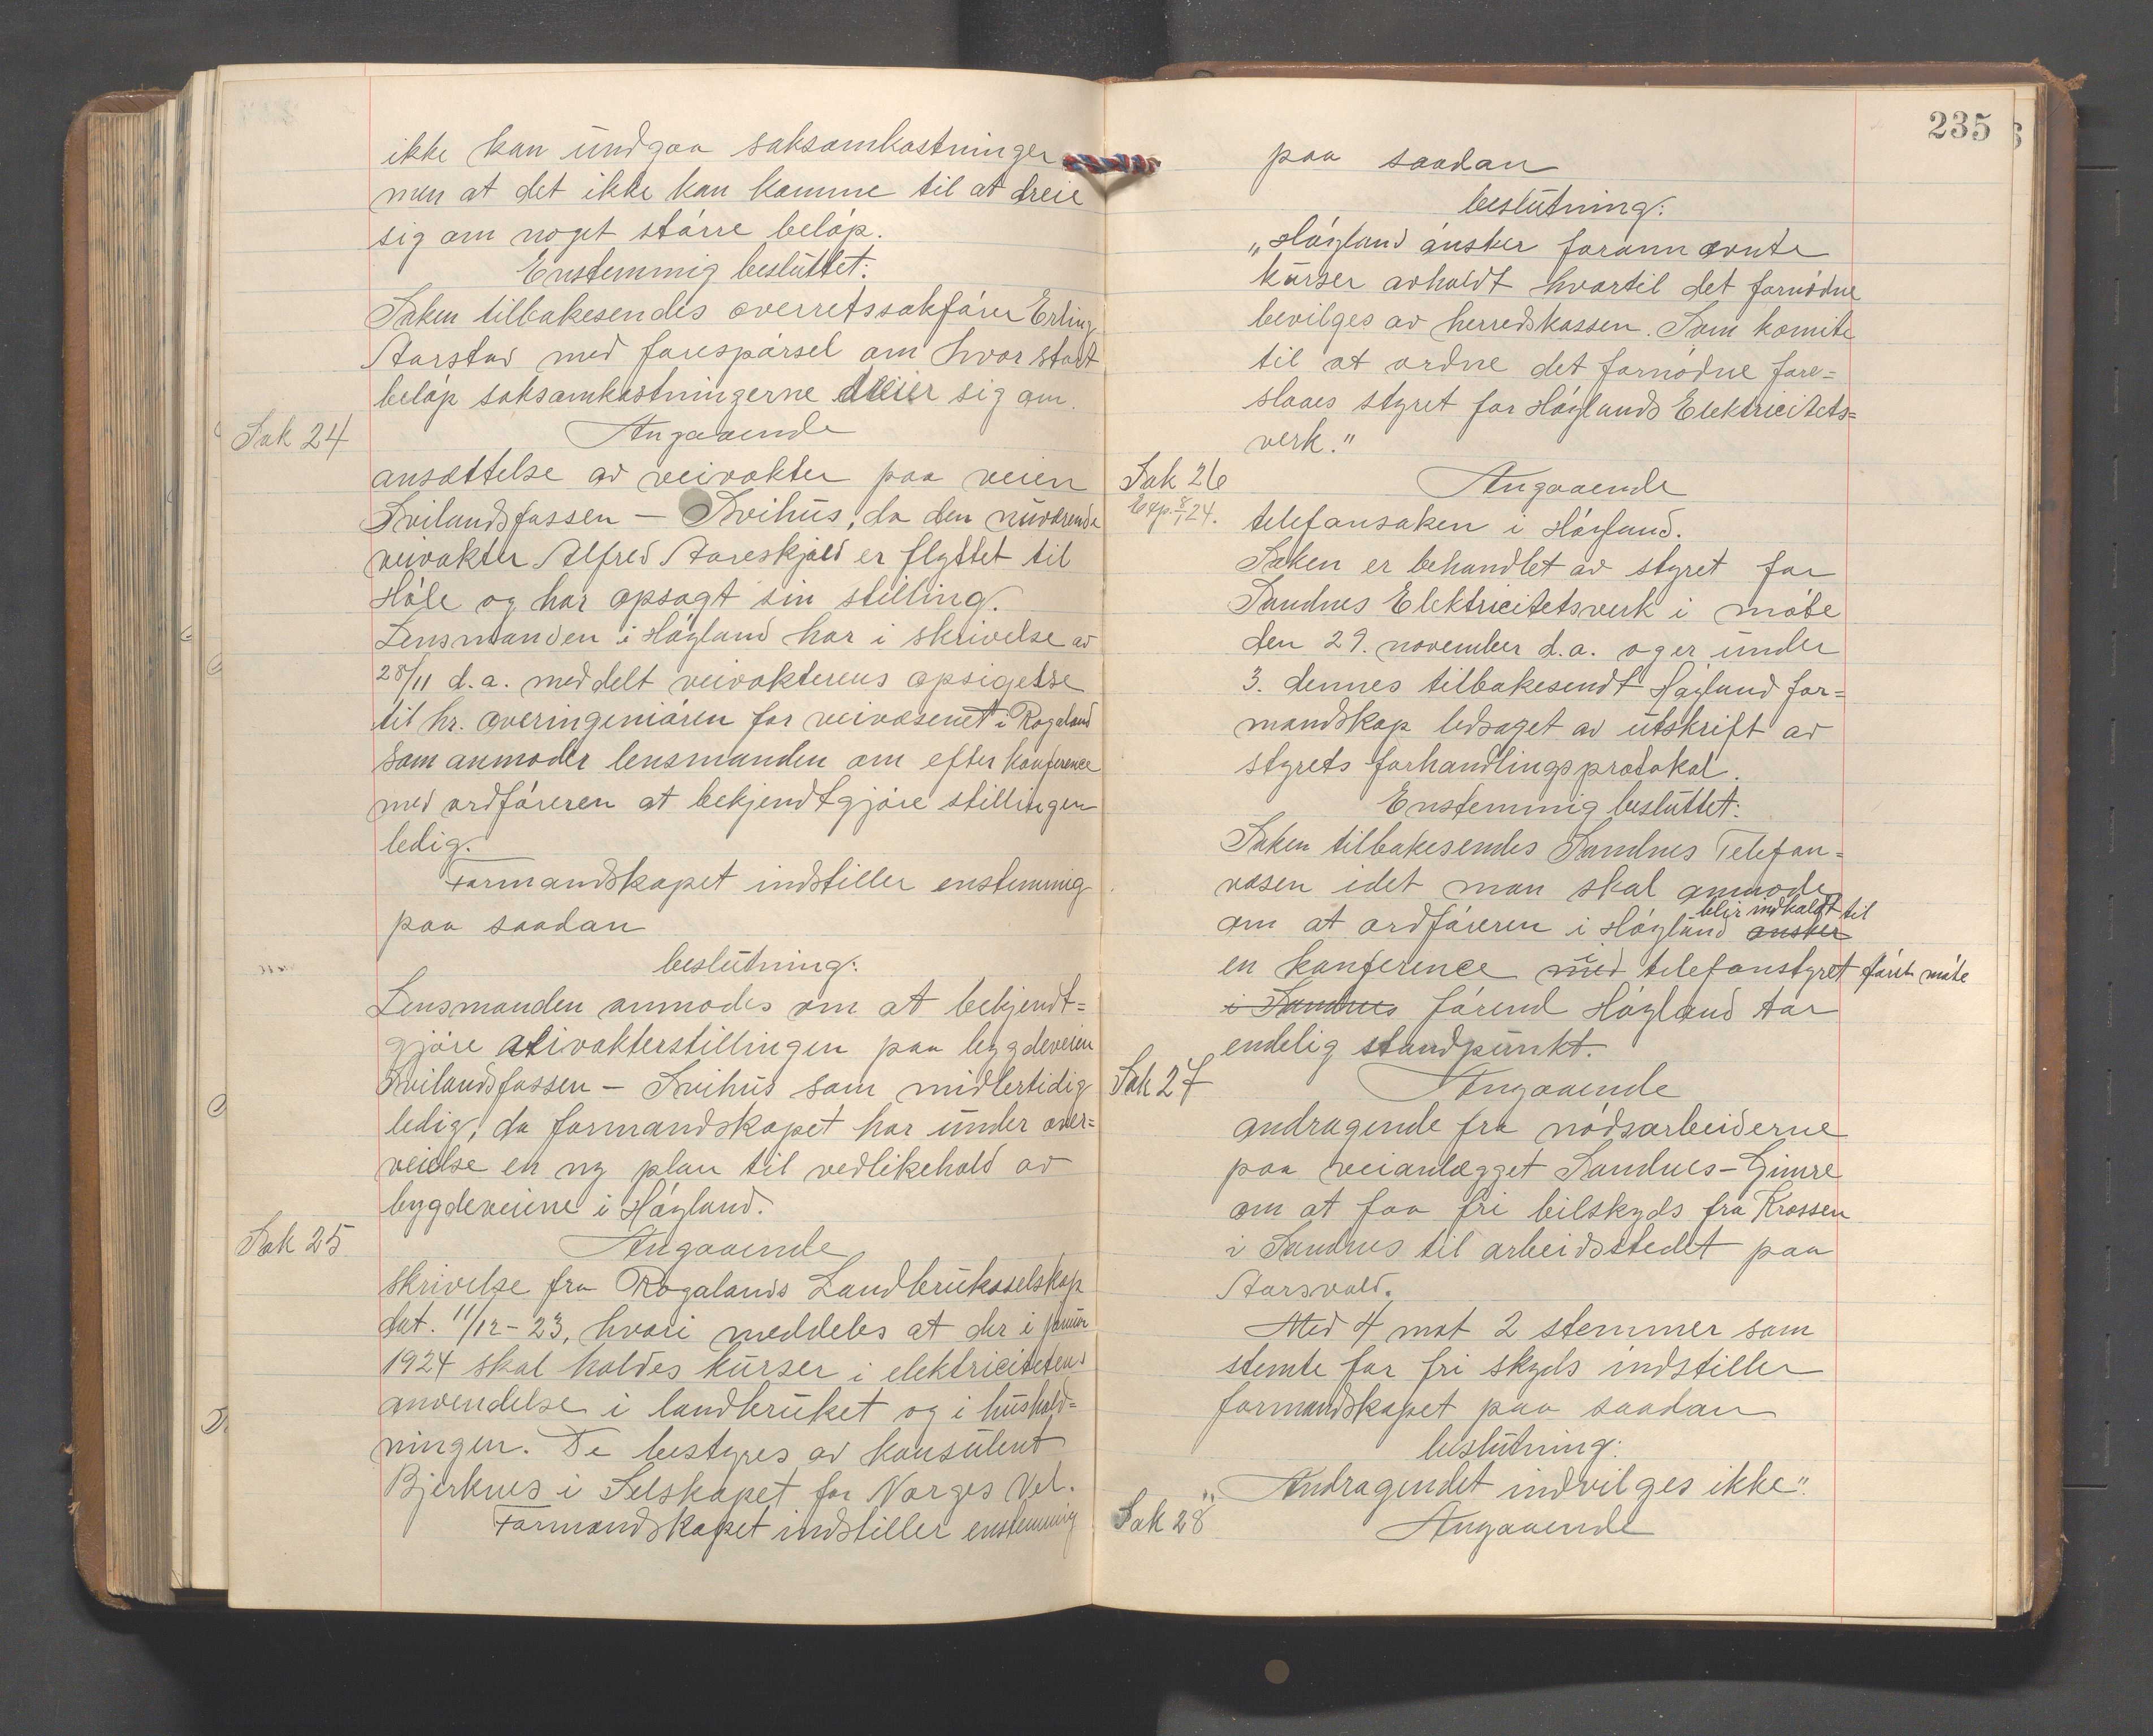 ikke kan undgaa saksomkostninger
men at det ikke kan komme til at dreie
sig om noget større beløp.
Enstemmig besluttet:
Saken tilbakesendes overretssakfører Erling
Aarstad med forespørsel om hvor stort
beløp saksomkostningerne dreier sig om.
Sak 24
Angaaende
ansættelse av veivokter paa veien
Svilandsfossen – Svihus, da den nuværende
veivokter Alfred Aareskjold er flyttet til
Høle og har opsagt sin stilling.
Lensmanden i Høyland har i skrivelse av
28/11 d.a. meddelt veivokterens opsigelse
til hr. overingeniøren for veivæsenet i Rogaland
som anmoder lensmanden om efter konference
med ordføreren at bekjendtgjøre stillingen
ledig.
Formandskapet indstiller enstemmig
paa saadan
beslutning:
Lensmanden anmodes om at bekjendt=
gjøre veivokterstillingen paa bygdeveien
Svilandsfossen – Svihus som midlertidig
ledig, da formandskapet har under over=
veielse en ny plan til vedlikehold av
bygdeveiene i Høyland.
Sak 25
Angaaende
skrivelse fra Rogalands Landbruksselskap
dat. 11/12 - 23, hvori meddeles at der i januar
1924 skal holdes kurser i elektricitetens
anvendelse i landbruket og i hushold=
ningen. De bestyres av konsulent
Bjerknes i Selskapet for Norges Vel.
Formandskapet indstiller enstemmig
235
paa saadan
beslutning:
„Høyland ønsker forannævnte
kurser avholdt hvortil det fornødne
bevilges av herredskassen. Som komite
til at ordne det fornødne fore=
slaaes styret for Høylands Elektricitets=
verk."
Sak 26
Exp. 8/1 24.
Angaaende
telefonsaken i Høyland.
Saken er behandlet av styret for
Sandnes Elektricitetsverk i møte
den 29. november d.a. og er under
3. dennes tilbakesendt Høyland for=
mandskap ledsaget av utskrift av
styrets forhandlingsprotokol.
Enstemmig besluttet:
Saken tilbakesendes Sandnes Telefon=
væsen idet man skal anmode
om at ordføreren i Høyland ønsker blir indkaldt til
en konference med i telefonstyret først møte
i Sandnes førend Høyland tar
endelig standpunkt.
Sak 27
Angaaende
andragende fra nødsarbeiderne
paa veianlægget Sandnes – Gimre
om at faa fri bilskyds fra Krossen
i Sandnes til arbeidsstedet paa
Aarsvold.
Med 4 mot 2 stemmer som
stemte for fri skyds indstiller
formandskapet paa saadan
beslutning:
„Andragendet indvilges ikke".
Sak 28
Angaaende